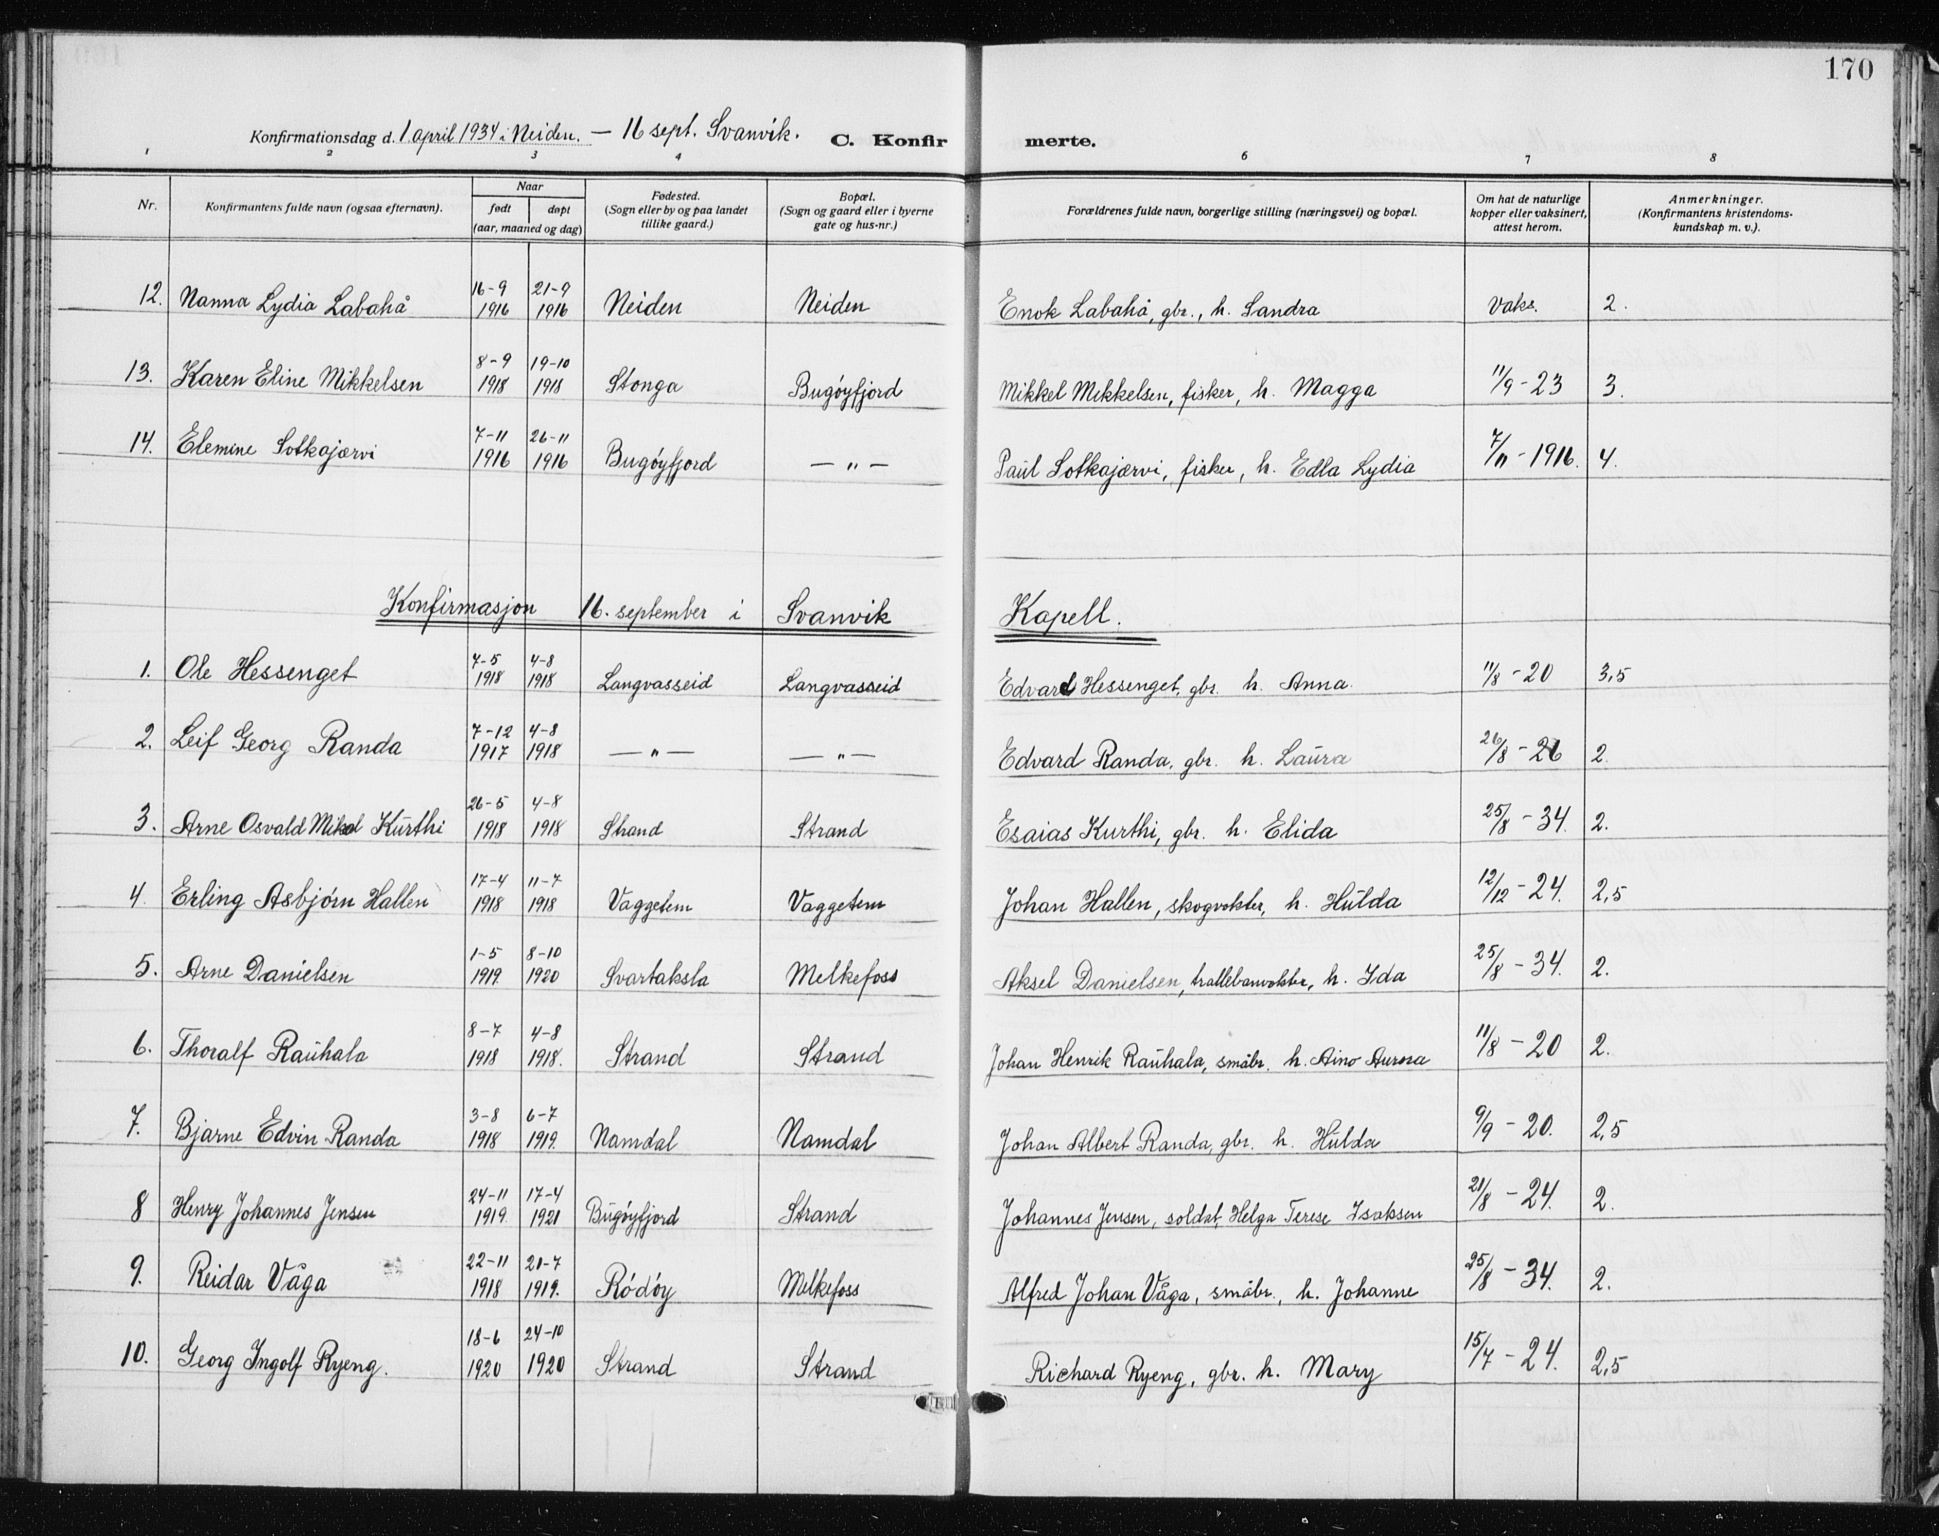 170
Konfirmationsdag d. 1. april 1934 i Neiden. — 16 sept. Svanvik. C. Konfir merte.
2 3 4 6 7 8
Nr. Konfirmantens fulde navn (ogsaa efternavn). Naar født døpt (aar, maaned og dag) Fødested. (Sogn eller by og paa landet tillike gaard.) Bopæl. (Sogn og gaard eller i byerne gate og hus-nr.) Forældrenes fulde navn, borgerlige stilling (næringsvei) og bopæl. Om hat de naturlige kopper eller vaksinert, attest herom. Anmerkninger. (Konfirmantens kristendoms-kundskap m. v.).
12. Nanna Lydia Labahå 16-9 1916 21-9 1916 Neiden Neiden Enok Labahå, gbr., h. Sandra vaks. 2.
13. Karen Eline Mikkelsen 8-9 1918 19-10 1918 Stonga Bugøyfjord Mikkel Mikkelsen, fisker, h. Magga 11/9-23 3.
14. Elemine Sotkajærvi 7-11 1916 26-11 1916 Bugøyfjord — " — Paul Sotkajærvi, fisker, h. Edla Lydia 7/11-1916. 4.
Konfirmasjon 16. september i Svanvik Kapell.
1. Ole Hessenget 7-5 1918 4-8 1918 Langvasseid Langvasseid Edvard Hessenget, gbr. h. Anna. 11/8-20 3,5
2. Leif Georg Randa 7-12 1917 4-8 1918 — " — — " — Edvard Randa, gbr. h. Laura 26/8-26 2.
3. Arne Osvald Mikal Kurthi 26-5 1918 4-8 1918 Strand Strand Esaias Kurthi, gbr. h. Elida 25/8-34. 2.
4. Erling Asbjørn Hallen 17-4 1918 11-7 1918 Vaggetem Vaggetem Johan Hallen, skogvokter, h. Hulda 12/12-24. 2,5
5. Arne Danielsen 1-5 1919. 8-10 1920 Svartaksla Melkefoss Aksel Danielsen, trallebanvokter, h. Ida 25/8-34. 2.
6. Thoralf Rauhala 8-7 1918 4-8 1918. Strand Strand Johan Henrik Rauhala, småbr. h. Aino Aurora 11/8-20 2.
7. Bjarne Edvin Randa 3-8 1918 6-7 1919. Namdal Namdal Johan Albert Randa, gbr. h. Hulda 9/9-20. 2,5
8 Henry Johannes Jensen 24-11 1919. 17-4 1921 Bugøyfjord Strand Johannes Jensen, soldat, Helga Terese Isaksen 21/8-24. 2.
9. Reidar Våga 22-11 1918 20-7 1919. Rödöy Melkefoss Alfred Johan Våga, småbr., h. Johanne 25/8-34. 2.
10. Georg Ingolf Ryeng. 18-6 1920 24-10 1920 Strand Strand Richard Ryeng, gbr. h. Mary 15/7-24. 2,5